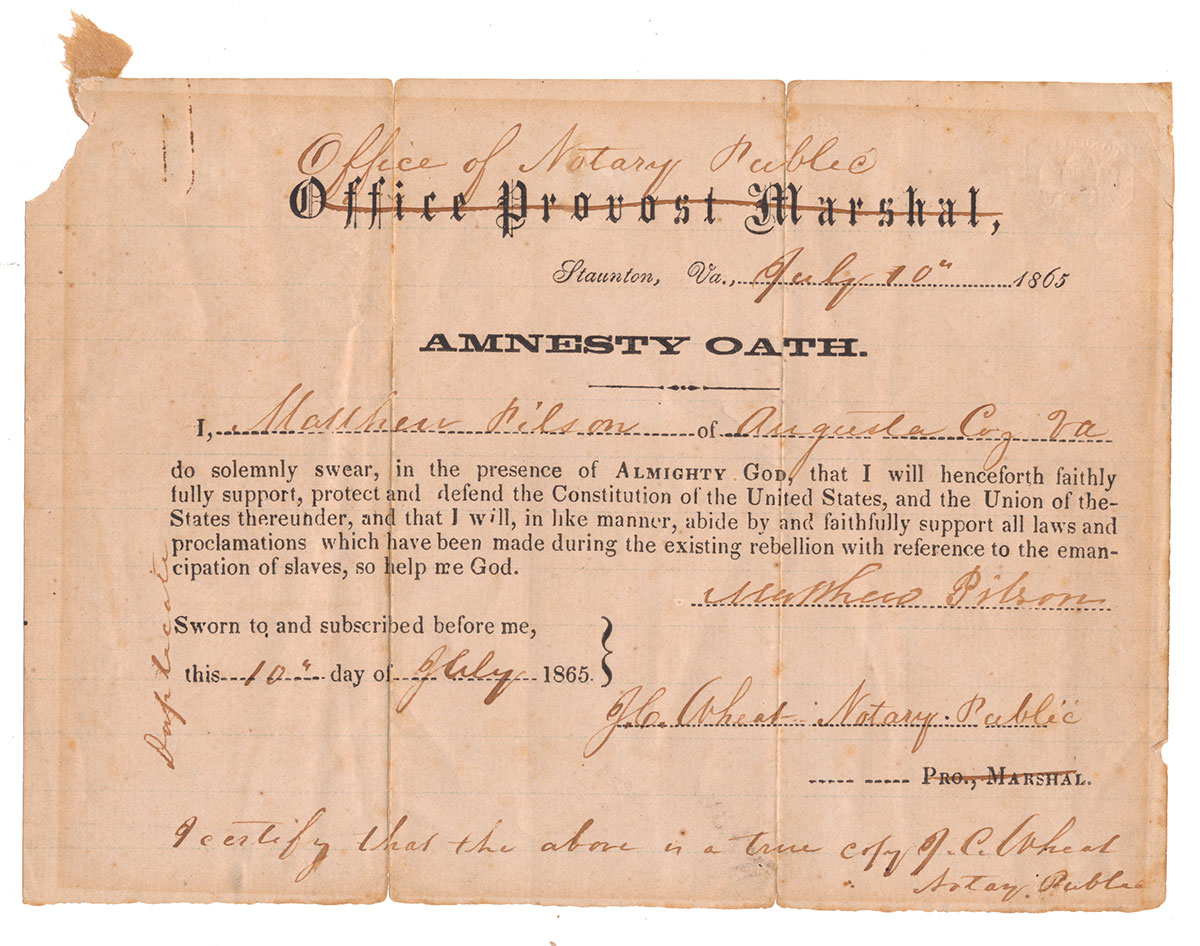 Office of Notary Public
Office Provost Marshal,
Staunton, Va., July 10" 1865
AMNESTY OATH.
I, Matthew Pilson of Augusta Coy Va
do solemnly swear, in the presence of ALMIGHTY GOD, that I will henceforth faithly
fully support, protect and defend the Constitution of the United States, and the Union of the-
States thereunder, and that I will, in like manner, abide by and faithfully support all laws and
proclamations which have been made during the existing rebellion with reference to the eman-
cipation of slaves, so help me God.
Matthew Pilson
Sworn to and subscribed before me,
this 10" day of July 1865.
J.C. Wheat Notary Public
PRO., MARSHAL.
I certify that the above is a true copy J. C. Wheat
Notay Public
Duplicate